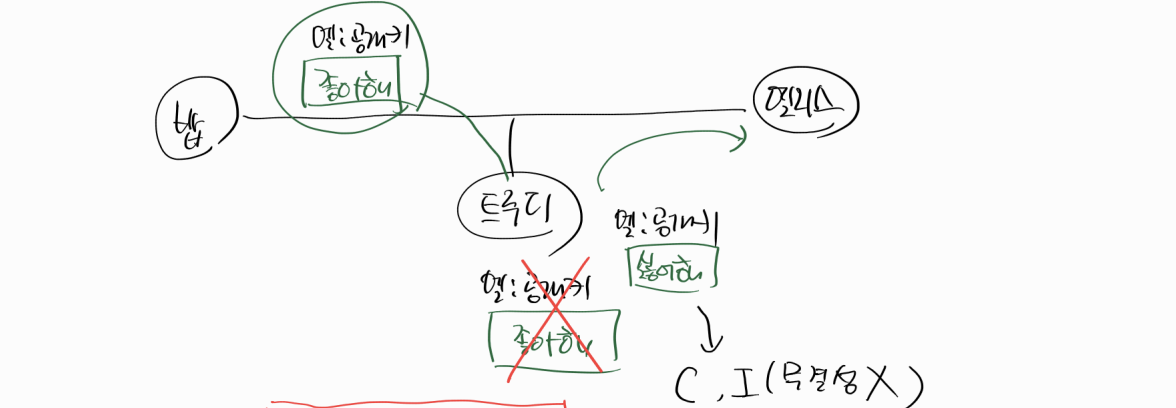 엘:공개키
좋아해
밥
엘리스
트루디
엘:공개키
싫어해
엘:공개키
좋아해
C, I (무결성X)